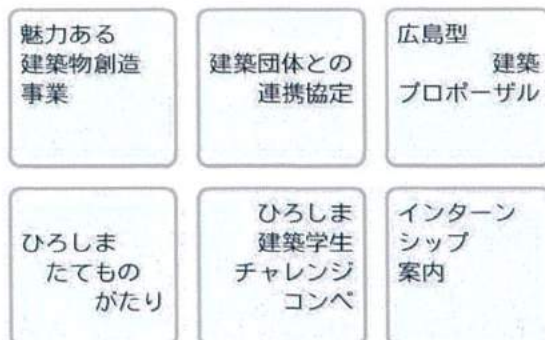 魅力ある
建築物創造
事業
建築団体との
連携協定
広島型
建築
プロポーザル
ひろしま
たてもの
がたり
ひろしま
建築学生
チャレンジ
コンペ
インターン
シップ
案内